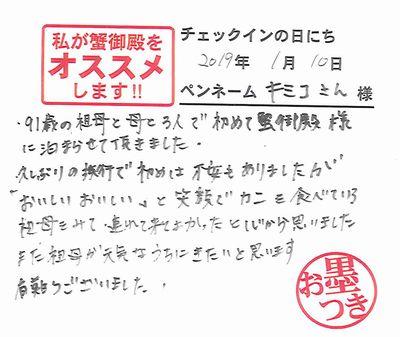 私が蟹御殿を
オススメ
します!!
チェックインの日にち
2019年 1月 10日
ペンネーム キミコさん 様
・91歳の祖母と母と3人で初めて蟹御殿様
に泊まらせて頂きました。
久しぶりの旅行で初めは不安もありましたが
「おいしい おいしい」と笑顔でカニを食べている
祖母をみて連れて来てよかったと心から思いました
また祖母が元気なうちにきたいと思います
有難うございました。
お墨つき